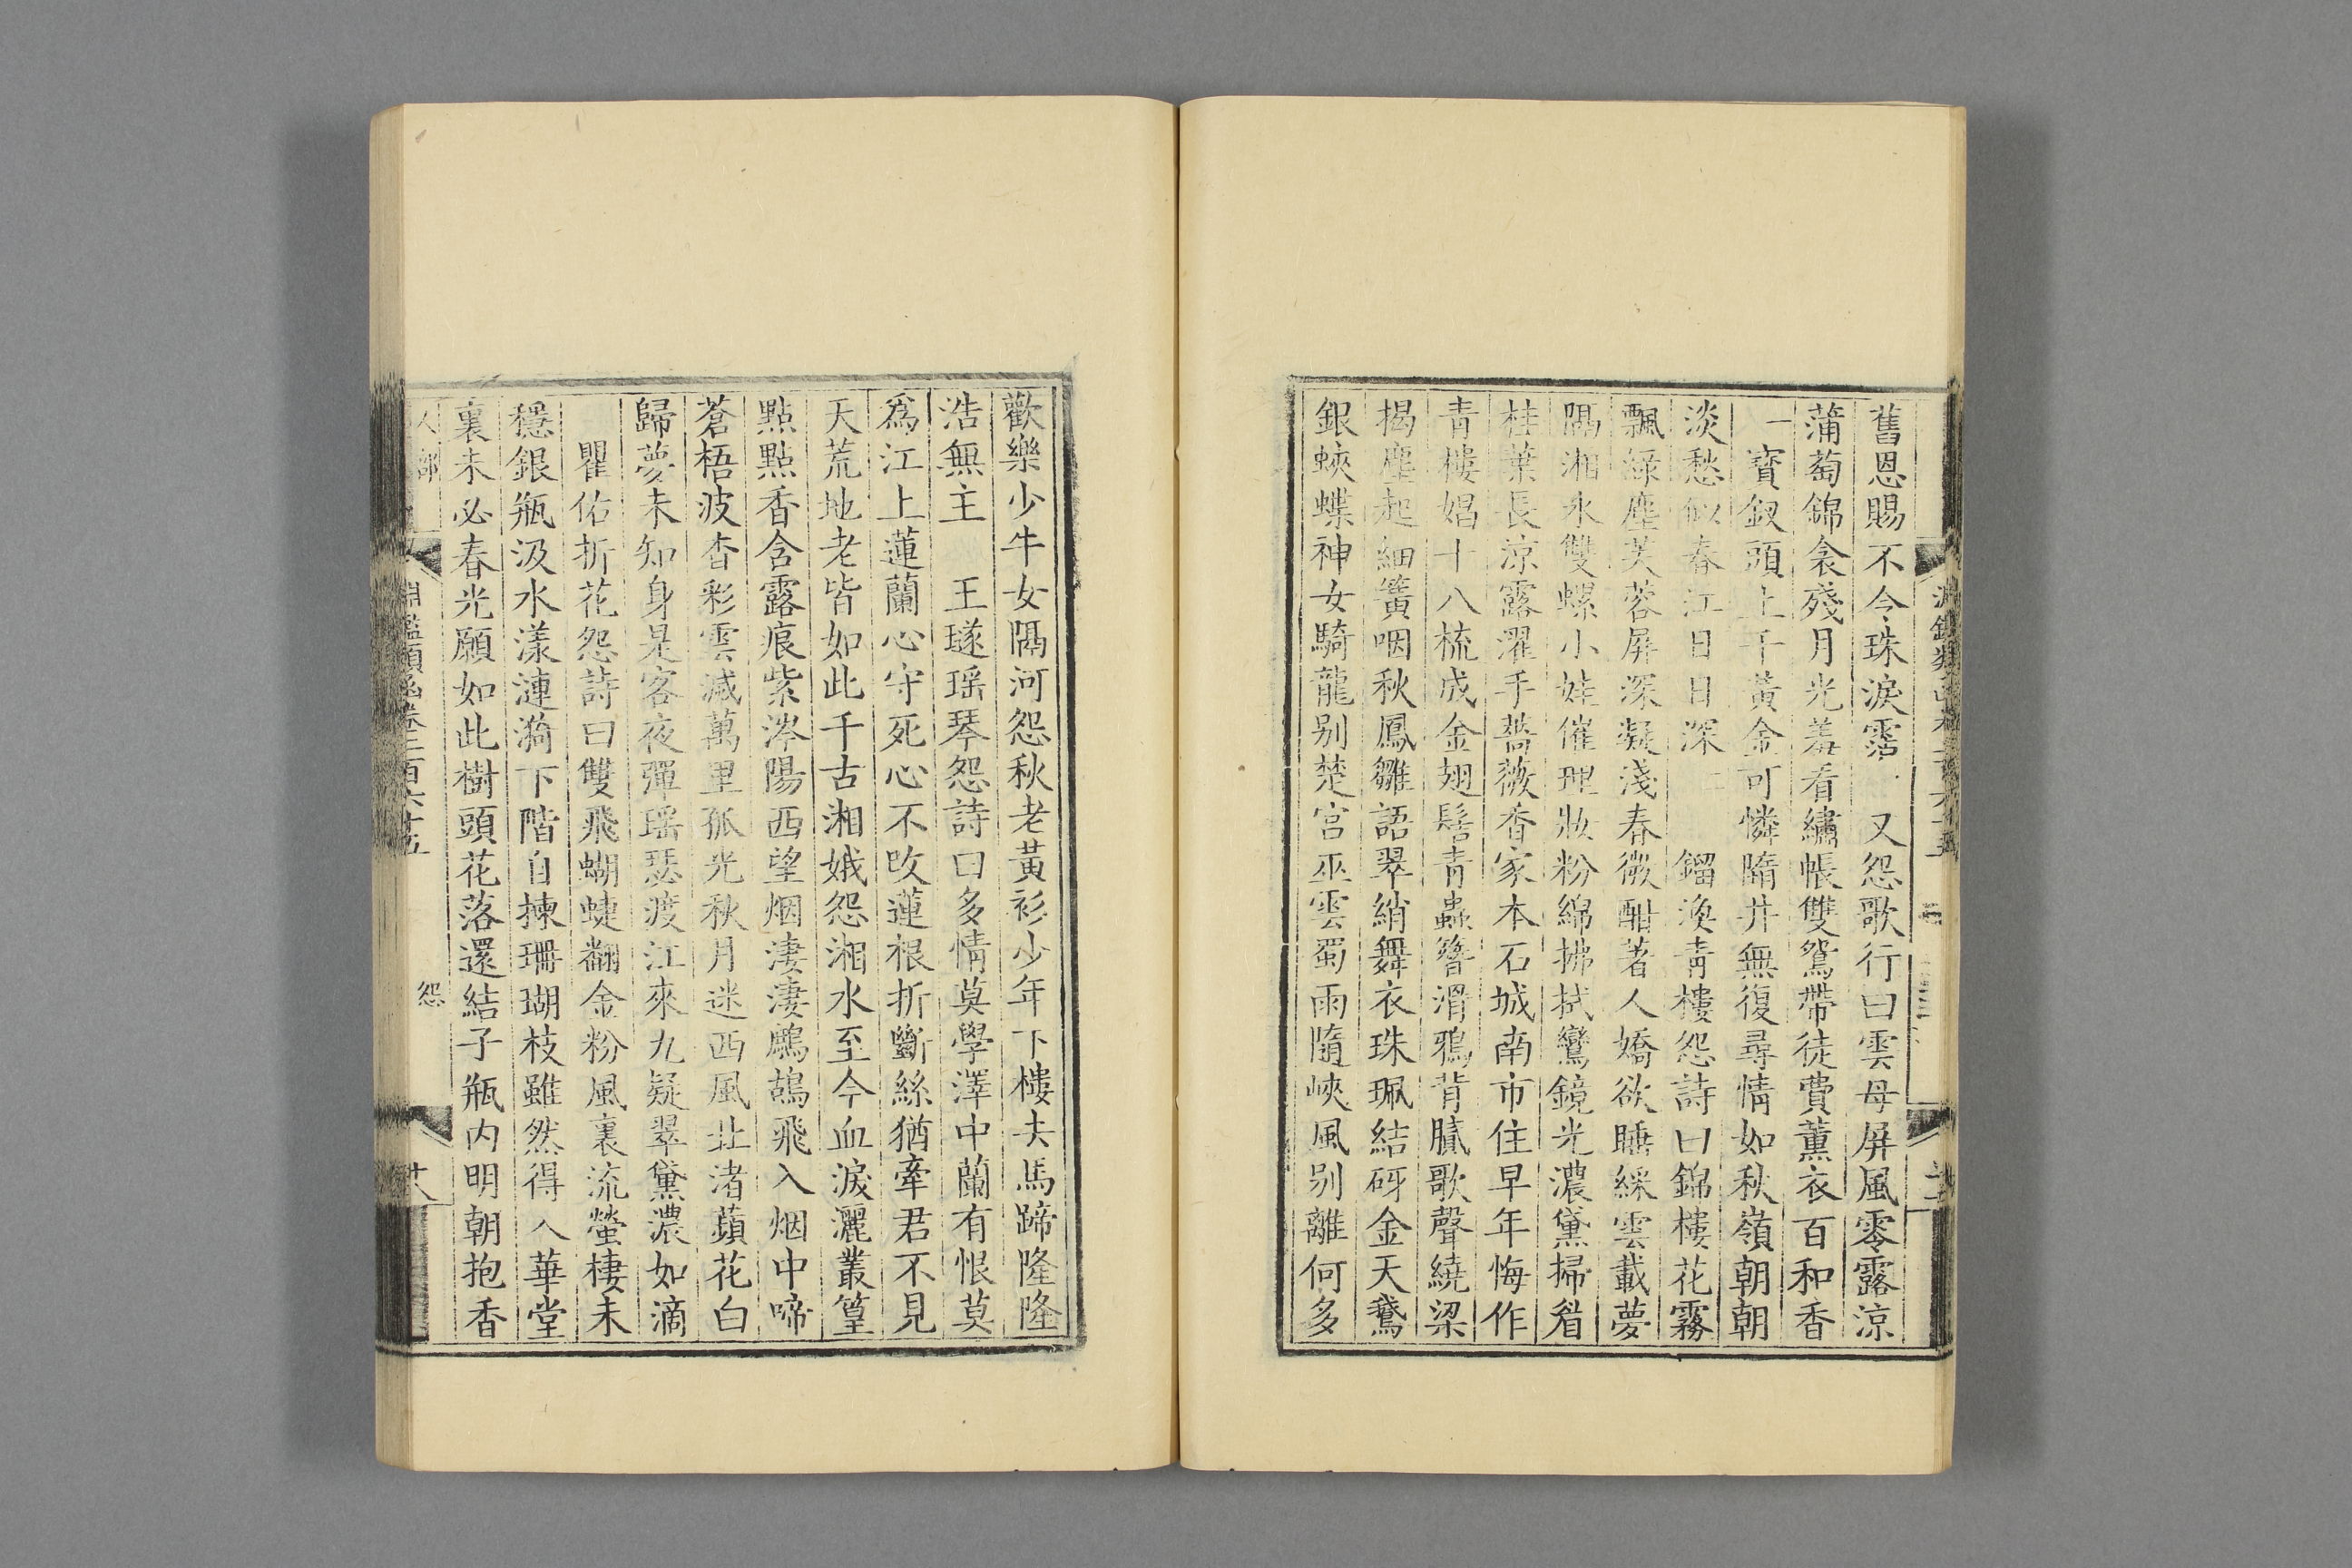 舊恩賜不今珠淚零 又怨歌行曰雲母屏風零露涼
蒲萄錦衾殘月光羞看繡帳雙鴛帶徒費薰衣百和香
一寶釵頭上千黃金可憐隋井無復尋情如秋嶺朝朝
淡愁似春江日日深 鎦渙青樓怨詩曰錦樓花霧
飄綠塵芙蓉屏深凝淺春微酣著人嬌欲睡綵雲載夢
隔湘水雙螺小娃催理妝粉綿拂拭鸞鏡光濃黛掃眉
桂葉長涼露濯手薔薇香家本石城南市住早年悔作
青樓娼十八梳成金翅髻青蟲簪滑鴉背膩歌聲繞梁
揭塵起細簧咽秋鳳雛語翠綃舞衣珠珮結砑金天鵞
銀蛺蝶神女騎龍别楚宮巫雲蜀雨隨峽風别離何多
歡樂少牛女隔河怨秋老黃衫少年下樓去馬蹄隆隆
浩無主 王璲瑤琴怨詩曰多情莫學澤中蘭有恨莫
爲江上蓮蘭心守死心不改蓮根折斷絲猶牽君不見
天荒地老皆如此千古湘娥怨湘水至今血淚灑叢篁
點點香含露痕紫涔陽西望烟淒淒鷓鴣飛入烟中啼
蒼梧波杳彩雲減萬里孤光秋月迷西風北渚蘋花白
歸夢未知身是客夜彈瑤瑟渡江來九疑翠黛濃如滴
瞿佑折花怨詩曰雙飛蝴蝶翻金粉風裏流螢棲未
穩銀瓶汲水漾漣漪下階自揀珊瑚枝雖然得入華堂
裏未必春光願如此樹頭花落還結子瓶内明朝抱香
人部 淵鑑類函卷三百六十五 怨 廿八